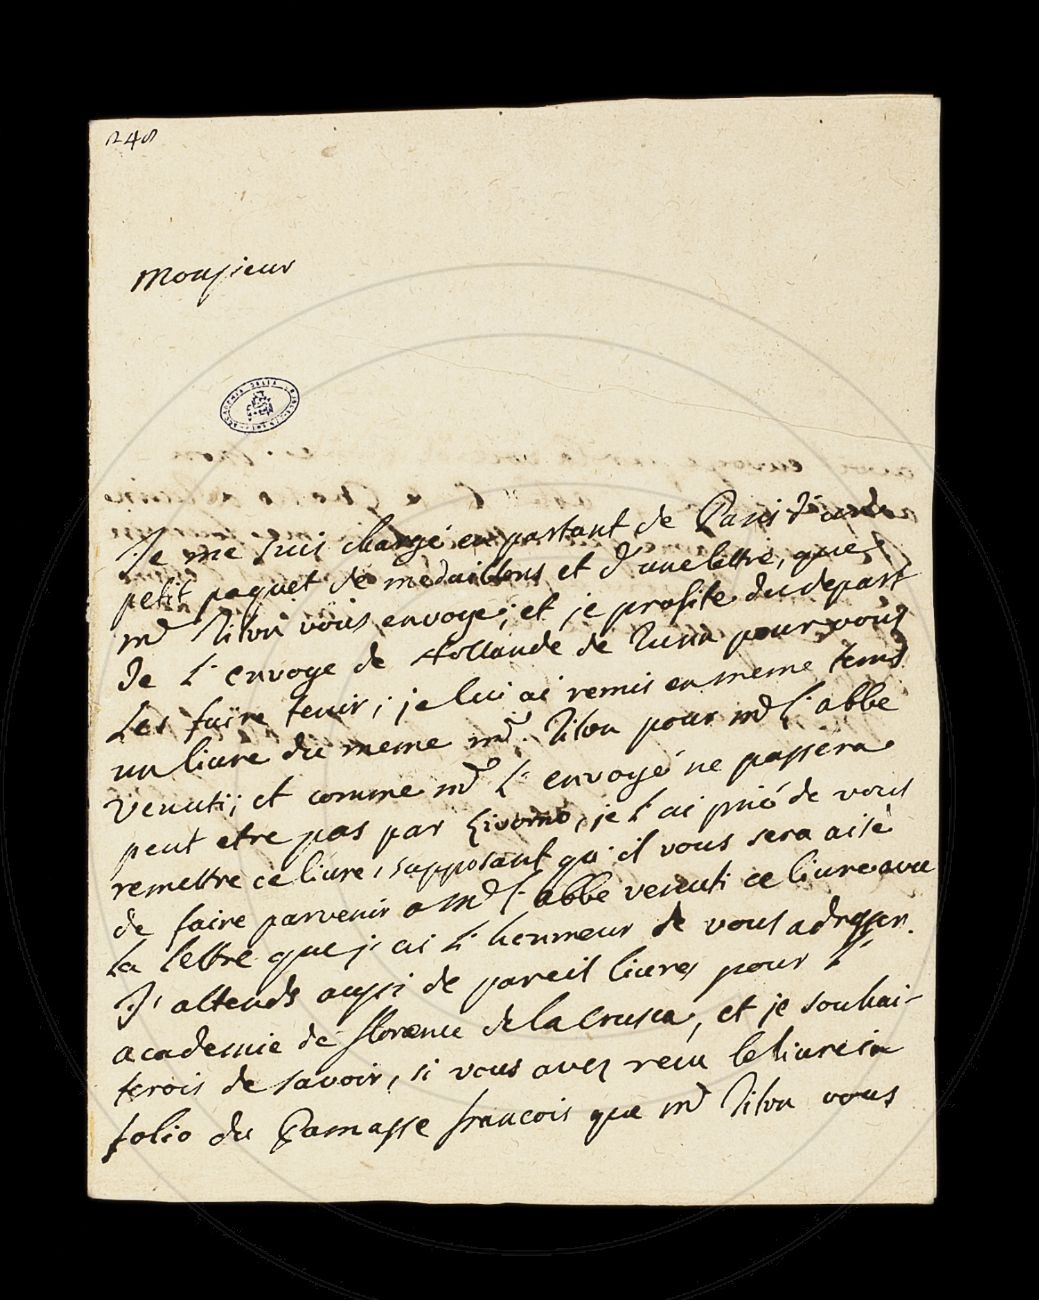 248
Monsieur
Je me suis chargé en partant de Paris d'un
petit paquet de medaillons et d'une lettre, que
mr Titon vous envoye; et je profite du depart
de l'envoye de Hollande de Turin pour vous
les faire tenir; je lui ai remis en meme tems
un livre du meme mr. Titon pour mr l'abbe
venuti; et comme mr l'envoyé ne passera
peut etre pas par Livorno, je l'ai prié de vous
remettre ce livre, supposant qu'il vous sera aisé
de faire parvenir a Mr l'abbe venuti ce livre avec
la lettre que j'ai l'honneur de vous adresser.
J'attends aussi de pareil livres pour l'
academie de florence de la Crusca, et je souhai-
terois de savoir, si vous avez recu le livre in
folio du Parnasse francois que mr Titon vous